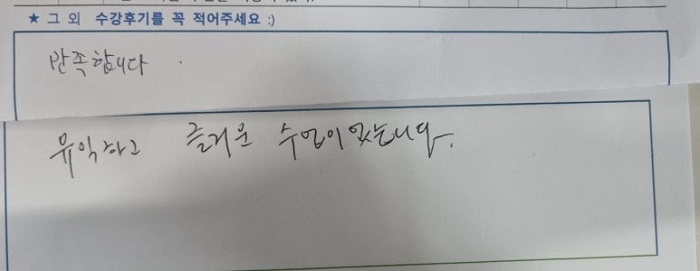 ★ 그 외 수강후기를 꼭 적어주세요 :)
만족합니다.
유익하고 즐거운 수업이었습니다.